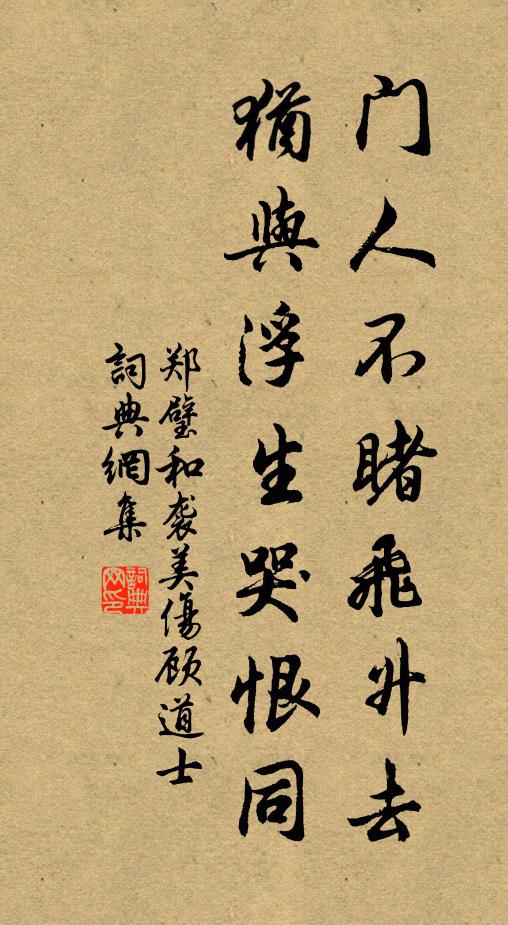 门人不睹飛升去
猶與浮生哭恨同
郑璧和袭美傷顾道士
詞典網集
詞典网印